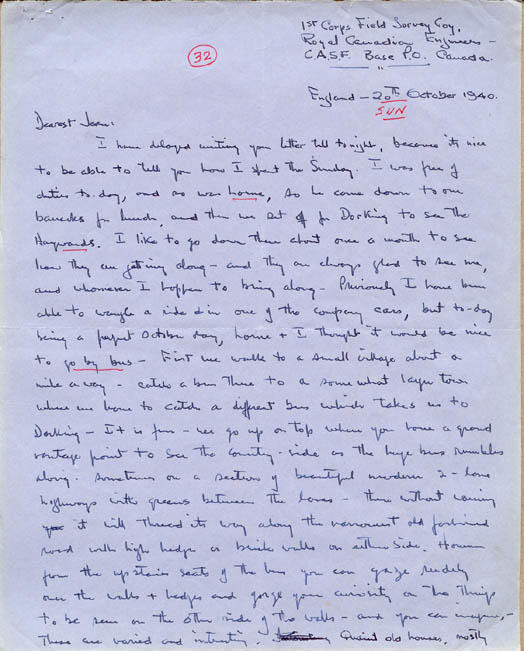 1st Corps Field Survey Coy,
Royal Canadian Engineers -
C.A.S.F. Base P.O. Canada.
32
England - 20th October 1940.
SUN
Dearest Jean:
I have delayed writing you letter till to night, because its nice
to be able to tell you how I spent the Sunday. I was free of
duties to-day, and so was home, so he came down to our
barracks for lunch, and then we set off for Dorking to see the
Haywards. I like to go down there about once a month to see
how they are getting along - and they are always glad to see me,
and whomever I happen to bring along - Previously I have been
able to wangle a ride in one of the company cars, but to-day
being a perfect October day, home + I thought it would be nice
to go by bus - First we walk to a small village about a
mile away - catch a bus there to a some what larger town
where we have to catch a different bus which takes us to
Dorking - It is fun - we go up on top where you have a grand
vantage point to see the country-side as the huge bus rumbles
along. Sometimes on a section of beautiful modern 2-lane
highways with greens between the lanes - then without warning
it will thread its way along the narrowest old fashioned
road with high hedges or brick walls on either side. However
from the upstairs seats of the bus you can gaze rudely
over the walls + hedges and gorge your curiosity on the things
to be seen on the other side of the walls - and you can imagine,-
These are varied and interesting. Quaint old houses, mostly